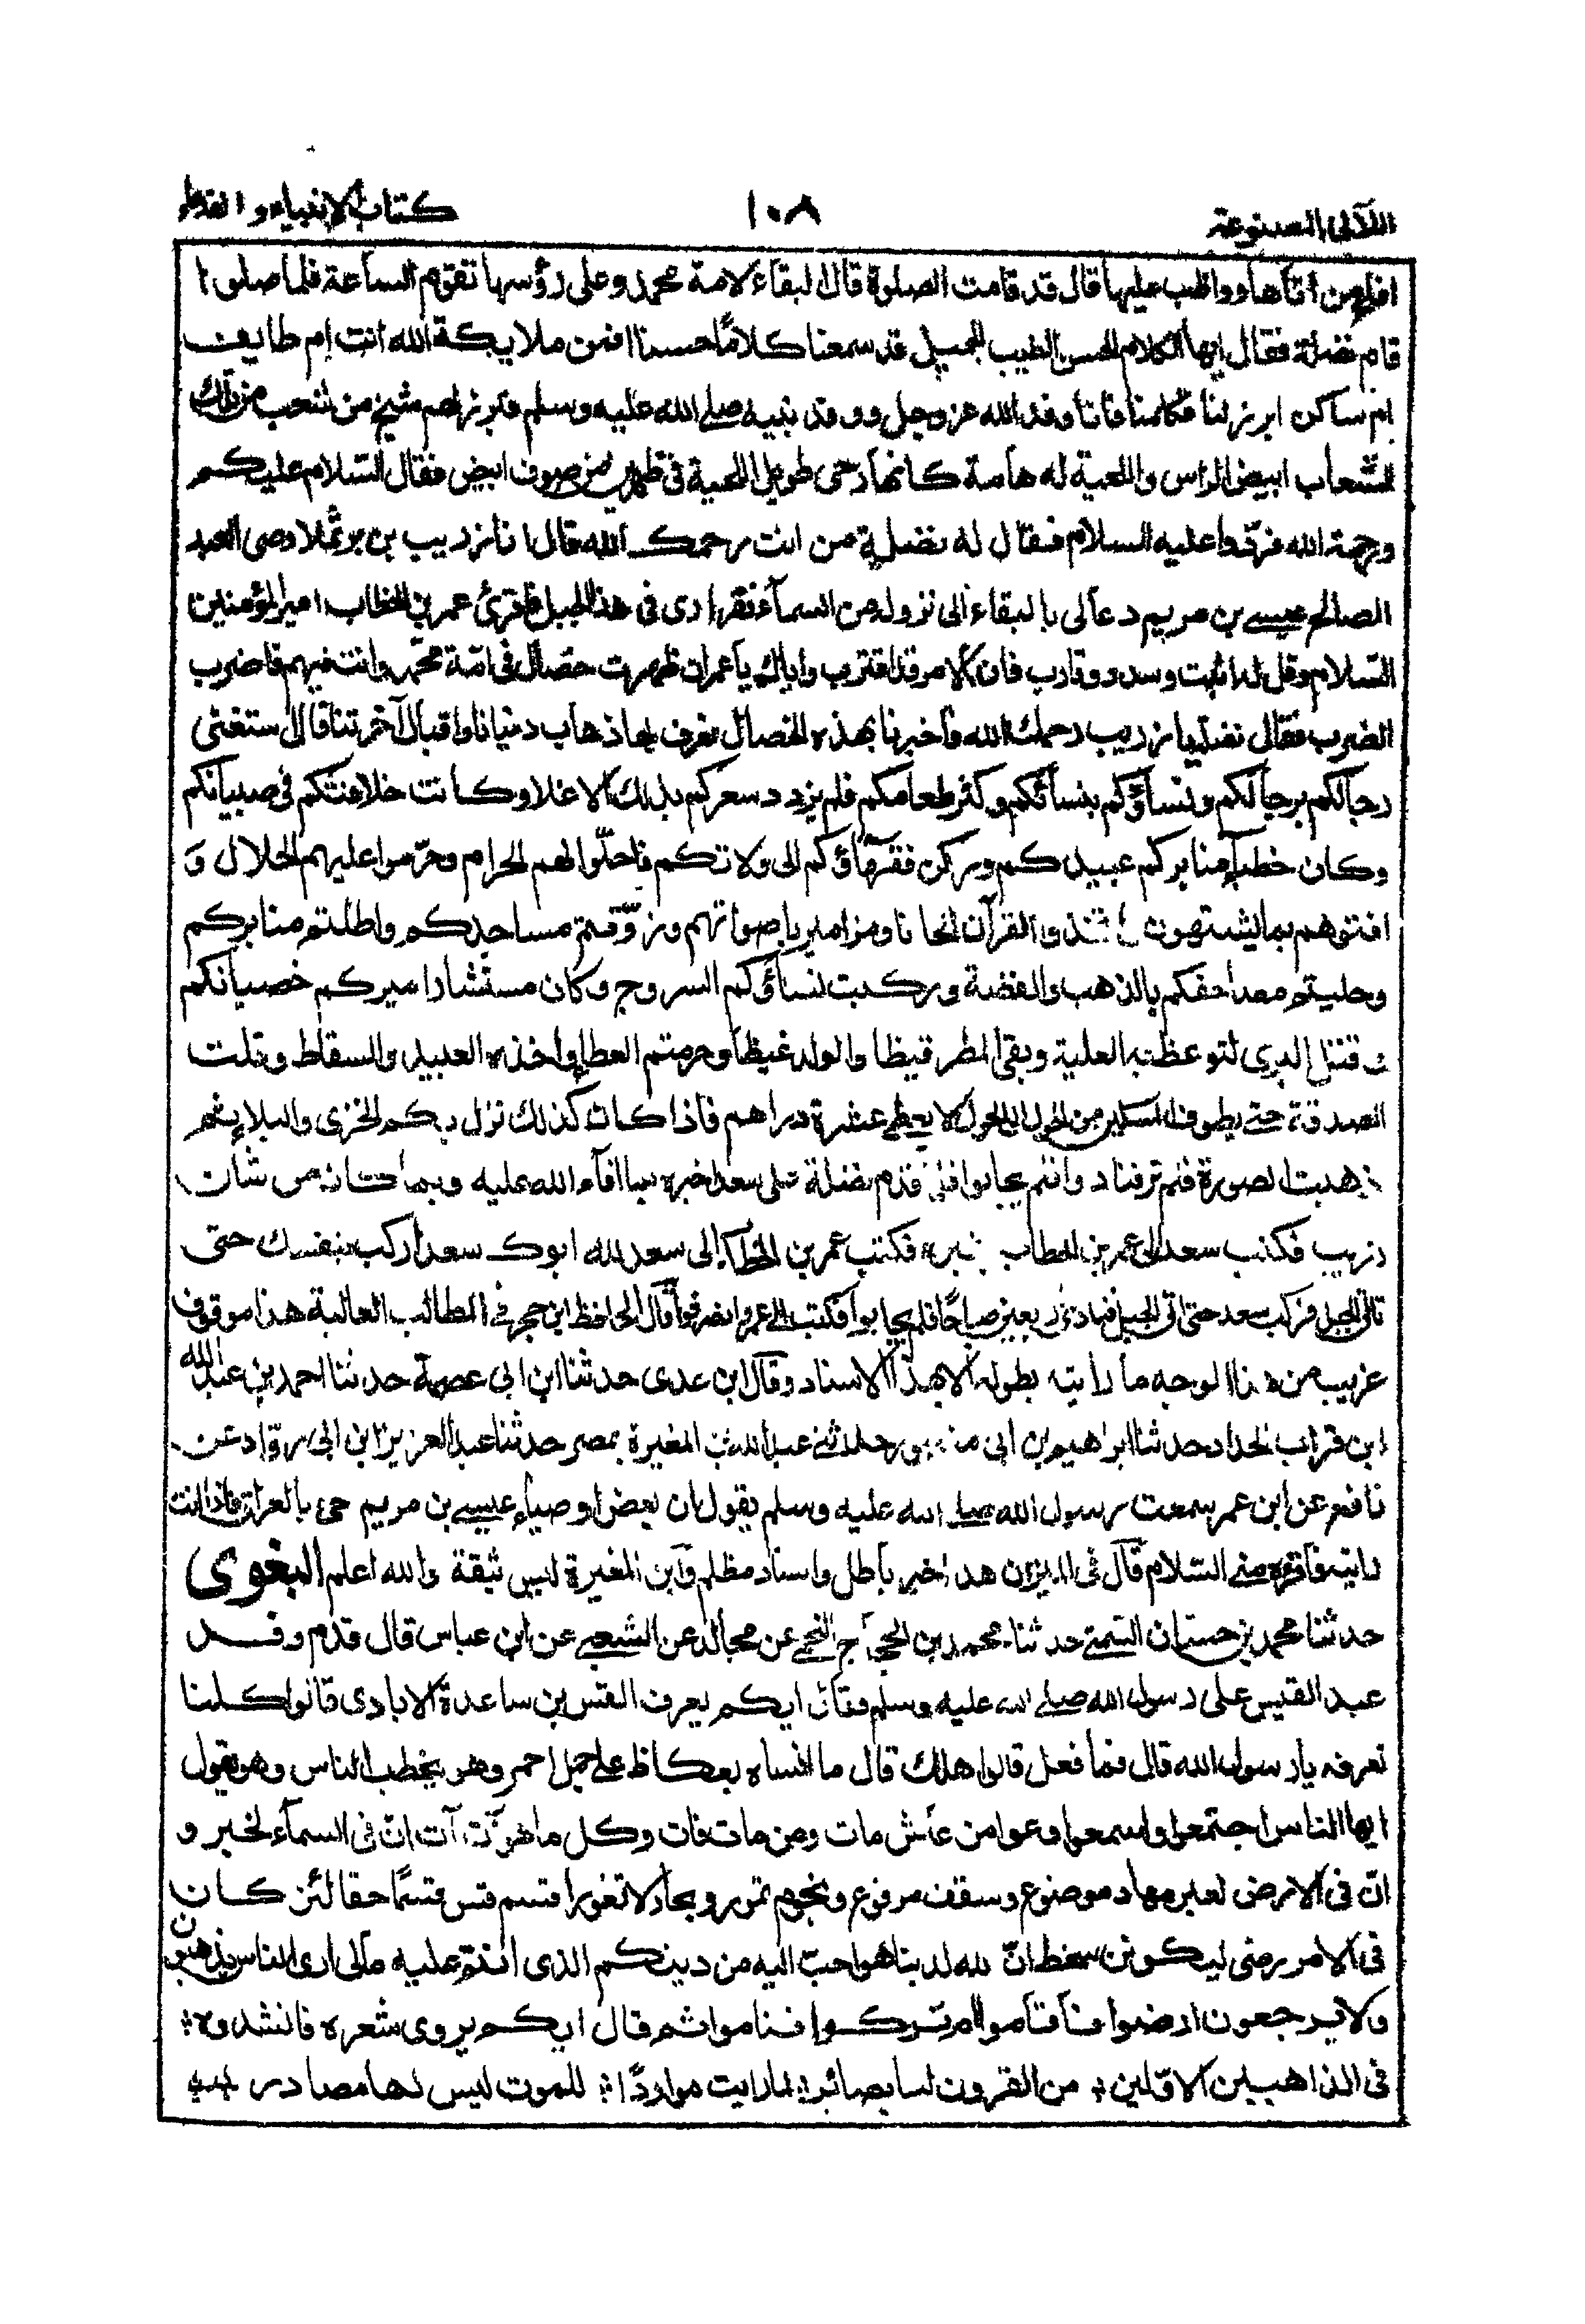 اللآلي المصنوعة ١٠٨ كتاب الانبياء و القدماء
افلح من أتاها وواظب عليها قال قد قامت الصلوة قال البقاء لامة محمد وعلى رؤسها تقوم الساعة فلما صلوا
قام نضلة فقال ايها الكلام الحسن الطيب الجميل قد سمعنا كلامًا حسنا افمن ملايكة الله انت ام طايف
ام ساكن ابرز لنا فكلمنا فانا وفد الله عز وجل ووفد نبيه صلے الله عليه وسلم فبرز لهم شيخ من شعب من تلك
الشعاب ابيض الراس واللحية له هامة كانها رحى طويل اللحية فى طمرين من صوف ابيض فقال السلام عليكم
ورحمة الله فردّوا عليه السلام فقال له نضلة من انت رحمك الله قال انا زريب بن برثملا وصى العبد
الصالح عيسے بن مريم دعا لى بالبقاء الى نزوله من السماء فقرارى فى هذا الجبل فاقرئ عمر بن الخطاب امير المؤمنين
السّلام وقل له اثبت وسدد وقارب فان الامر قد اقترب واياك يا عمر ان ظهرت خصال فى امّة محمّد وانت فيهم فالهرب
الهرب فقال نضلة يا زريب رحمك الله فأخبرنا بهذه الخصال نعرف بها ذهاب دنيانا واقبال آخرتنا قال اذا استغنى
رجالكم برجالكم ونساؤكم بنسائكم وكثر طعامكم فلم يزدد سعركم بذلك الا غلا وكانت خلافتكم فى صبيانكم
وكان خطباء منابركم عبيدكم وركن فقهاؤكم الى ولاتكم فاحلّوا لهم الحرام وحرّموا عليهم الحلال وَ
افتوهم بما يشتهون اتخذوا القرآن الحانا ومزامير باصواتهم وزوّقتم مساجدكم واطلتم منابركم
وحليتم مصاحفكم بالذهب والفضة وركبت نساؤكم السروج وكان مستشار اميركم خصيانكم
وقتل البرى لتوعظ به العلية وبقى المطر قيظا والولد غيظا وحرمتم العطاء واخذه العبيد والسقاط وقلت
الصدقة حتے يطوف المسكين من الحول الى الحول لا يعطے عشرة دراهم فاذا كان كذلك نزل بكم الخزى والبلاء ثم
ذهبت الصورة فلم تر فنادوا فلم يجابوا فلما قدم نضلة على سعد اخبره بما افاء الله عليه وبما كان من شان
زريب فكتب سعد الى عمر بن الخطاب يخبره فكتب عمر بن الخطاب إلى سعد لله ابوك سعد اركب بنفسك حتى
تاتى الجبل فركب سعد حتى اتى الجبل فنادى اربعين صباحًا فلم يجابوا فكتب الى عمر وانصرفوا قال الحافظ ابن حجر فى المطالب العالية هذا موقوف
غريب من هذا الوجه ما رايته بطوله الا بهذا الاسناد وقال ابن عدى حدثنا ابن ابى عصمة حدثنا احمد بن عبد الله
ابن قراب الحداد حدثنا ابراهيم بن ابى رجل حدثنى عبد الله بن المغيرة بمصر حدثنا عبد العزيز ابن ابى روّاد عن
نافع عن ابن عمر سمعت رسول الله صلے الله عليه وسلم يقول ان بعض اوصياء عيسے بن مريم حى بالعراق فاذا انت
رايته فأقره منى السّلام قال فى الميزان هذا خبر باطل واسناد مظلم وابن المغيرة ليس بثقة والله اعلم البغوى
حدثنا محمد بن حسان السمتے حدثنا محمد بن الحجاج النخمے عن مجالد عن الشعبے عن ابن عباس قال قدم وفد
عبد القيس على رسول الله صلے الله عليه وسلم فقال ايكم يعرف القس بن ساعدة الايادى قالوا كلنا
نعرفه يا رسول الله قال فما فعل قالوا هلك قال ما انساه بعكاظ على جمل احمر وهو يخطب الناس وهو يقول
ايها الناس اجتمعوا واسمعوا وعوا من عاش مات ومن مات فات وكل ما هو آت آت ان فى السمآء لخبر و
انّ فى الارض لعبر مهاد موضوع وسقف مرفوع ونجوم تمور وبحار لا تغور اقسم قس قسمًا حقا لئن كان
فى الامر رضى ليكونن سخط انّ لله لدينا هو احبّ اليه من دينكم الذى انتم عليه مالى ارى الناس يذهبون
ولا يرجعون ارضوا فأقاموا ام تركوا فناموا ثم قال ايكم يروى شعره فانشدوه ؛
فى الذاهبين الاولين ؛ من القرون لنا بصائر ؛ لما رايت مواردًا ؛ للموت ليس لها مصادر